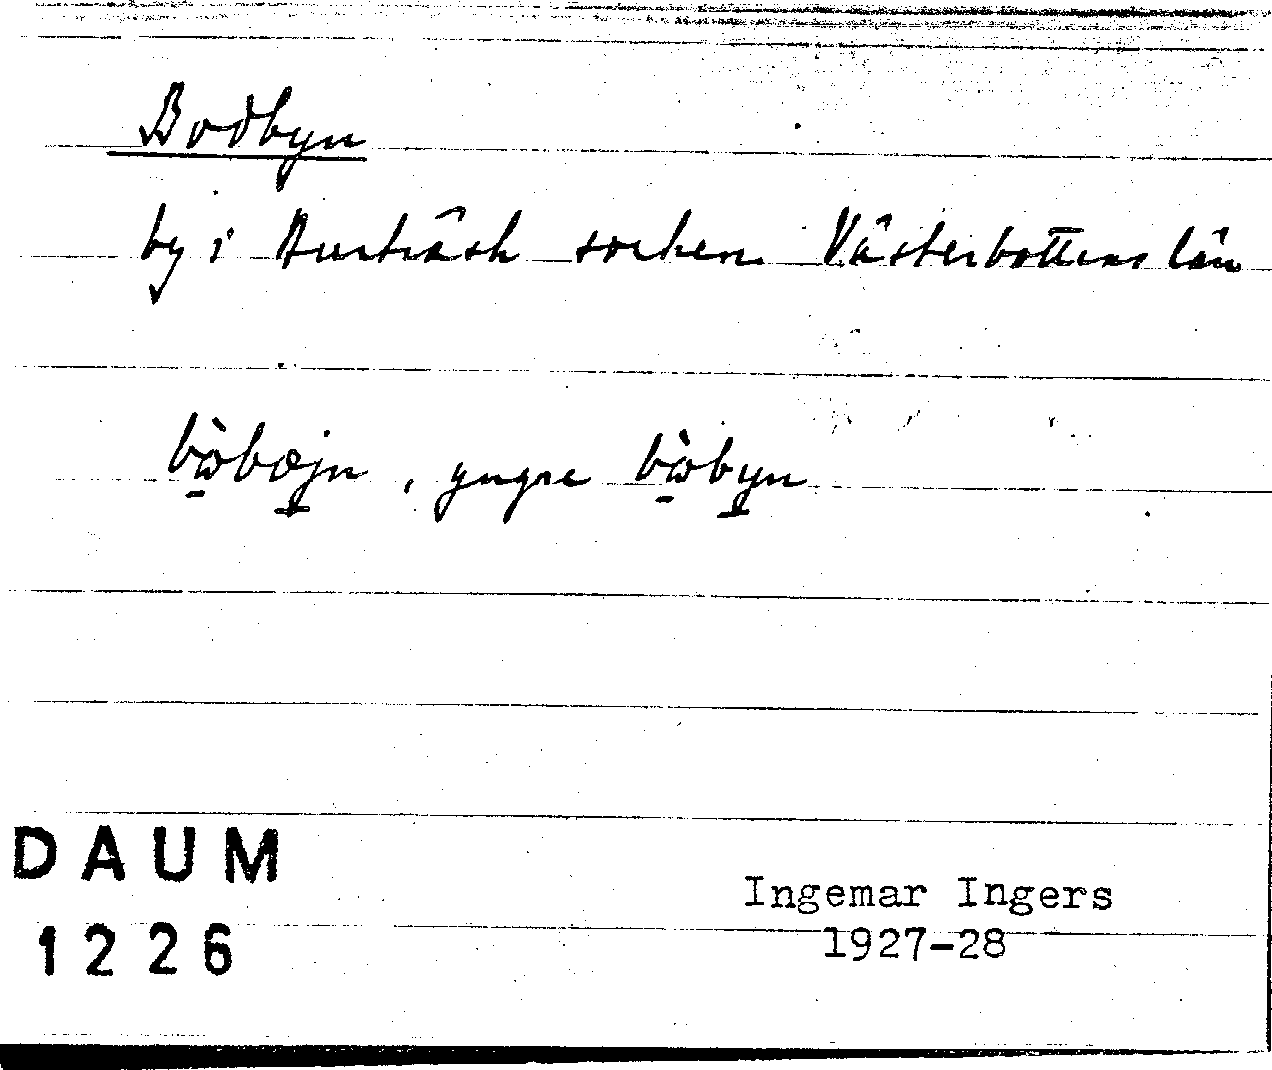 Bodbyn
by i Burträsk socken Västerbottens län
bὼ̱bœjn, yngre bὼ̱byn
DAUM
1226
Ingemar Ingers
1927-28